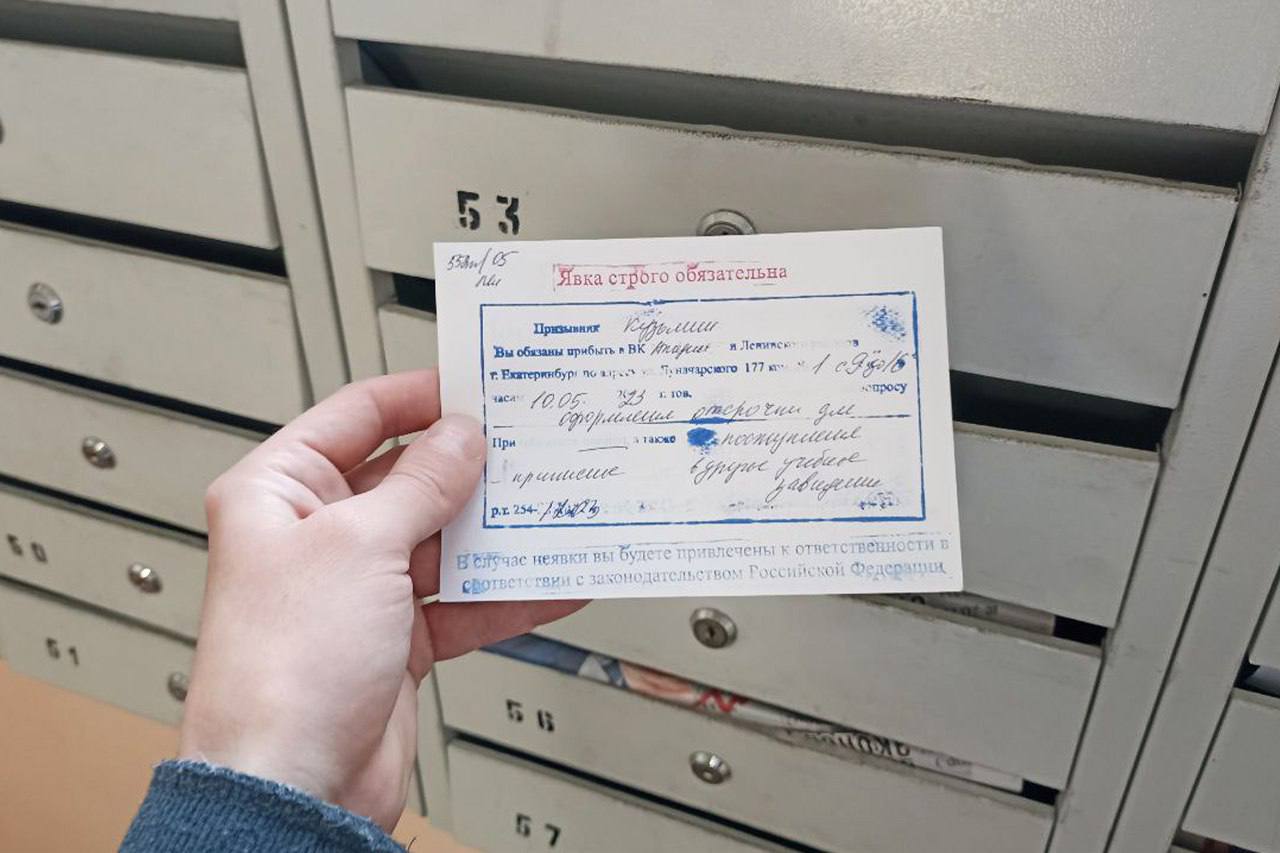 53
Явка строго обязательна
Призывник Кузьмин
Вы обязаны прибыть в ВК и Ленинского
г. Екатеринбург по адресу ул. Луначарского 177 1 с 9 до 16
часа 10.05. 23 г. гов. вопросу
оформления отсрочки для
При а также поступления
в другое учебное
заведение
р.т. 254-
В случае неявки вы будете привлечены к ответственности в
соответствии с законодательством Российской Федерации
50
51
56
57